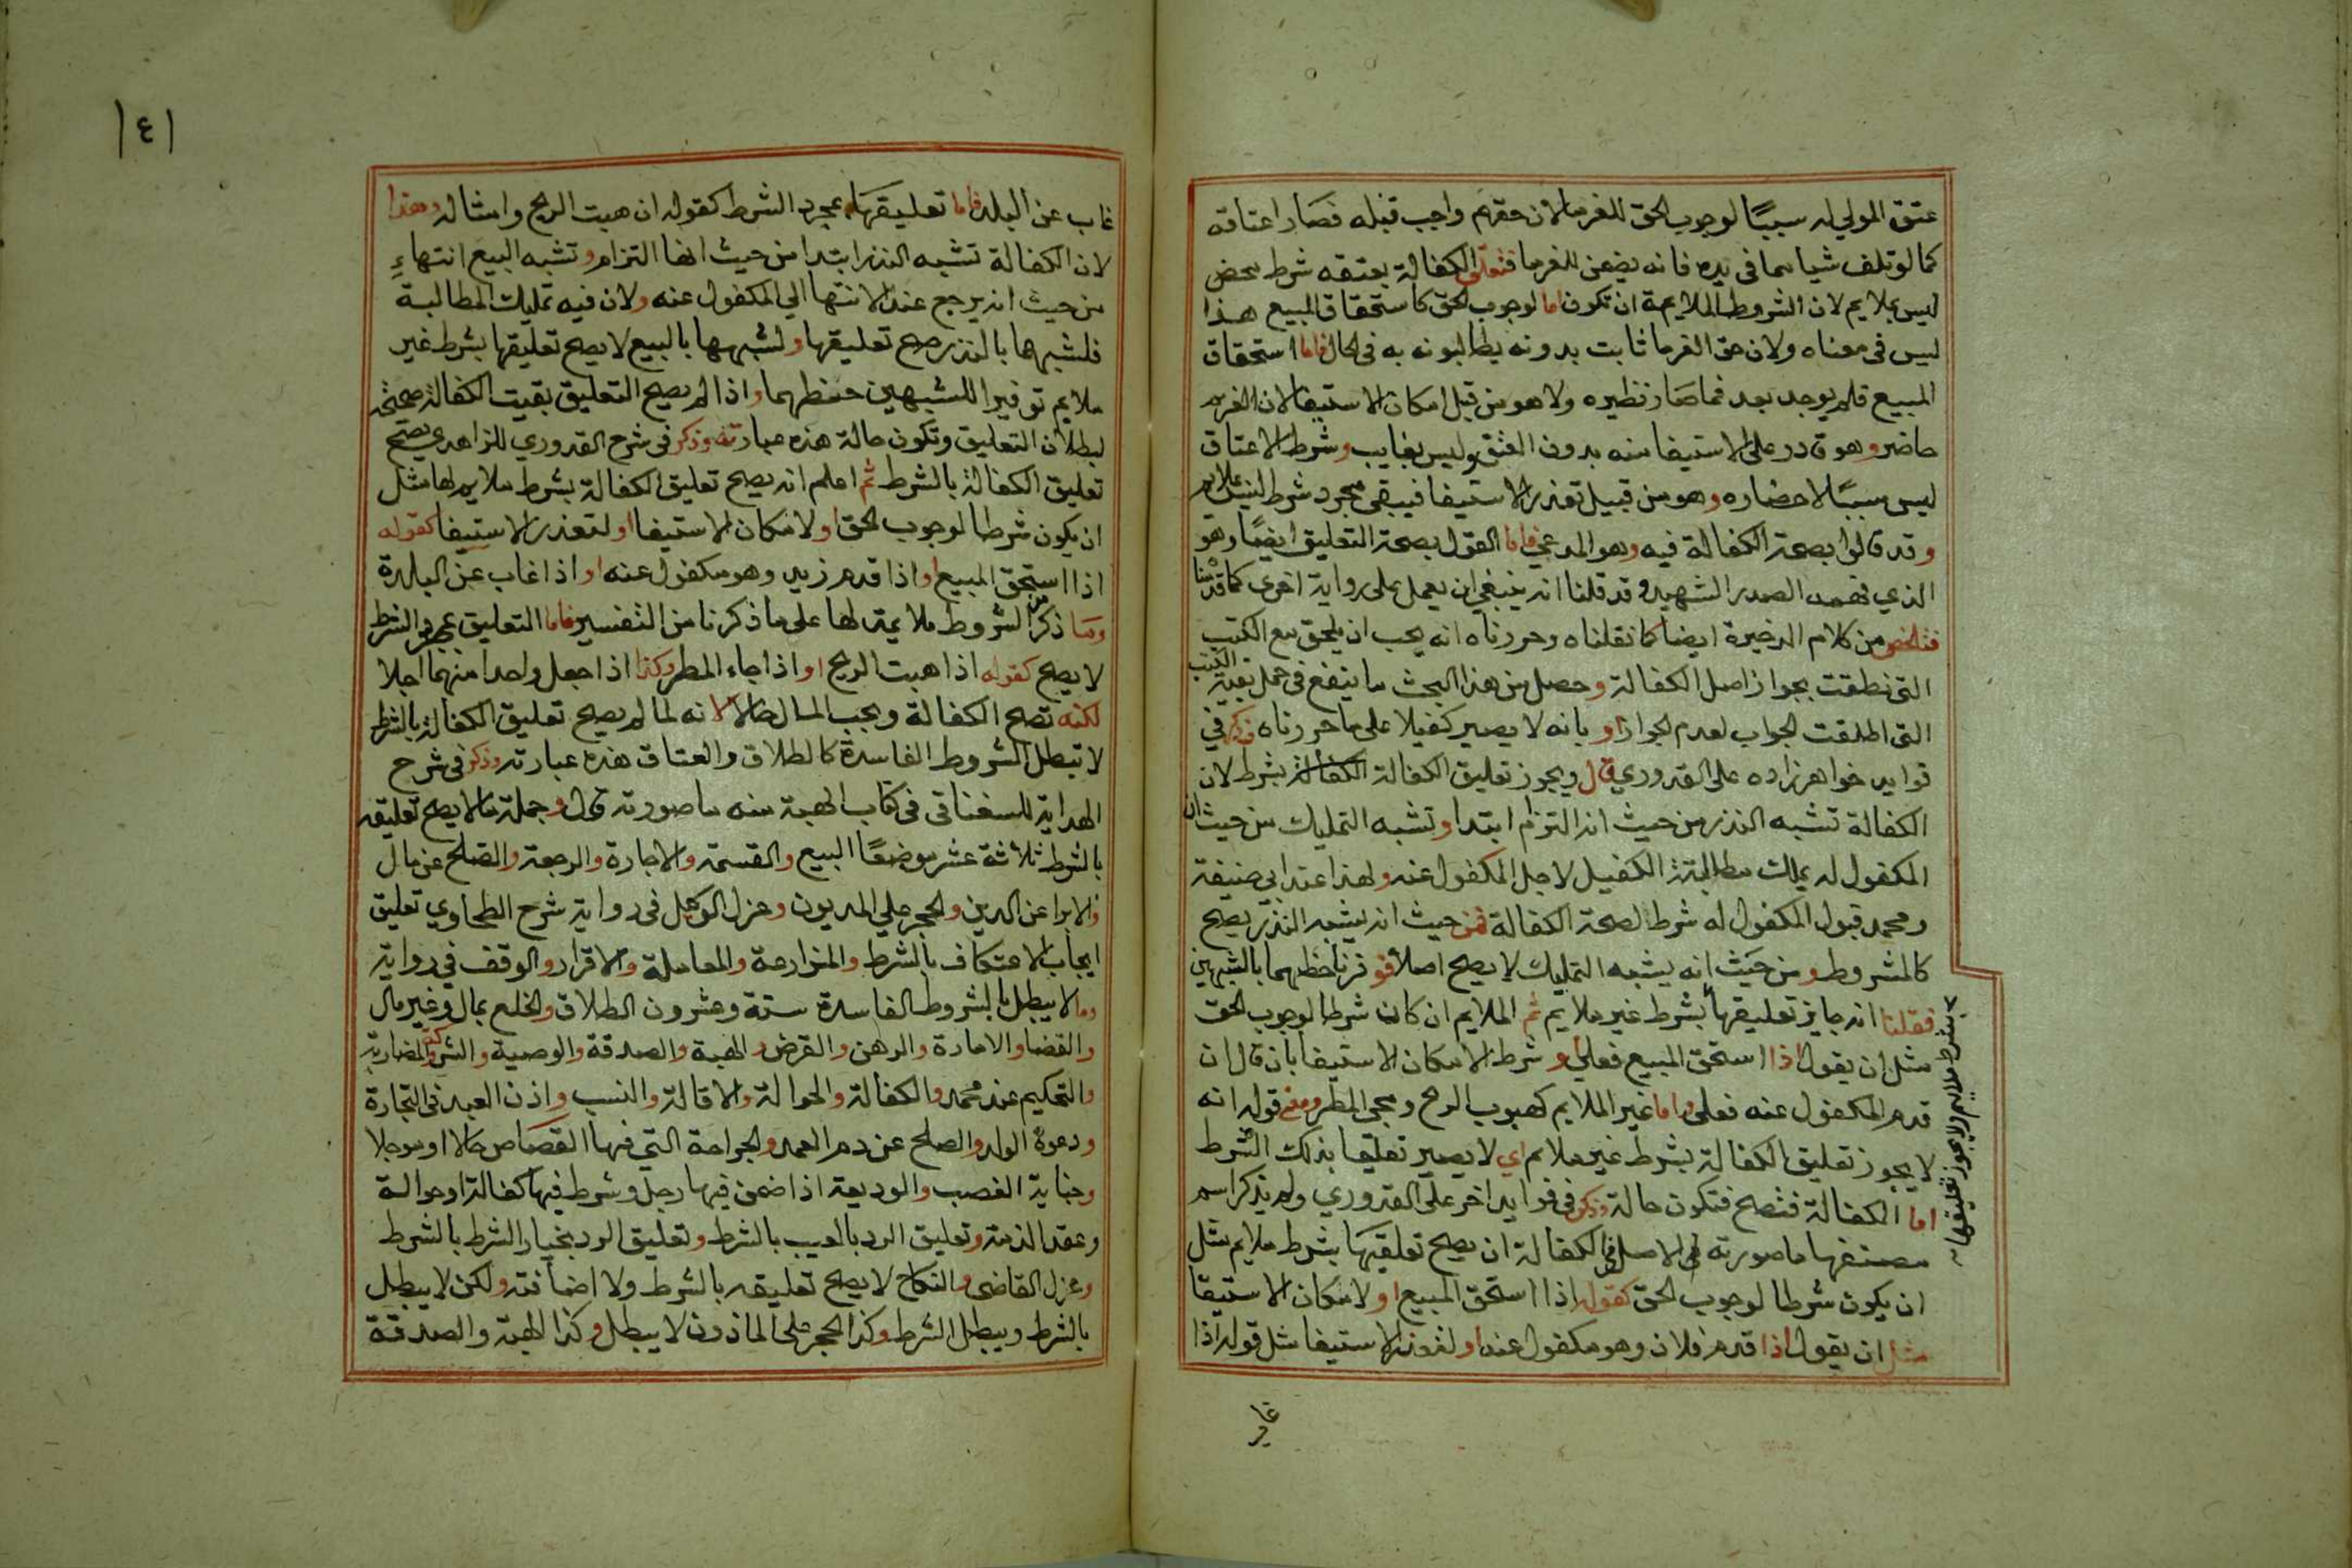 عتق المولي له سببًا لوجوب الحق للغرما لان حقهم واجب قبله فصار اعتاقه
كما لو تلف شيا مما في يده فانه يضمن للغرما فتعلق الكفالة بعتقه شرط محض
ليس بملايم لان الشروط الملايمة ان تكون اما لوجوب الحق كاستحقاق المبيع هذا
ليس في معناه ولان حق الغرما ثابت بدونه يطالبونه به في الحال فاما استحقاق
المبيع فلم يوجد بعد فما صار نظيره ولا هو من قبل امكان الاستيفا لان الغريم
حاضر وهو قادر على الاستيفا منه بدون العتق وليس بغايب وشرط الاعتاق
ليس سببًا لاحضاره وهو من قبيل تعذر الاستيفا فيبقى مجرد شرط ليس بملايم
وقد قالوا بصحة الكفالة فيه وهو المدعي فاما القول بصحة التعليق ايضًا وهو
الذي فهمه الصدر الشهيد وقد قلنا انه ينبغي ان يعمل على رواية اخرى كما قدمنا
فتلخص من كلام الذخيرة ايضا كما نقلناه وحررناه انه يجب ان يلحق مع الكتب
التي نطقت بجواز اصل الكفالة وحصل من هذا البحث ما ينفع في حمل بقية الكتب
التي اطلقت الجواب لعدم الجواز او بانه لا يصير كفيلا على ما حررناه وذكر في
فوايد خواهرزاده على القدوري قال ويجوز تعليق الكفالة الكفالة بشرط لان
الكفالة تشبه النذر من حيث انه التزام ابتدا وتشبه التمليك من حيث ان
المكفول له يملك مطالبة الكفيل لاجل المكفول عنه ولهذا عند ابي حنيفة
ومحمد قبول المكفول له شرط لصحة الكفالة فمن حيث انه يشبه النذر يصح
كالمشروط ومن حيث انه يشبه التمليك لا يصح اصلا فوفرنا حظهما بالشبهين
فقلنا انه جايز تعليقها بشرط غير ملايم ثم الملايم ان كان شرطا لوجوب الحق
بشرط ملايم ولا يجوز تعليقها
مثل ان يقول اذا استحق المبيع فعلي او شرط الامكان الاستيفا بان قال ان
قدم المكفول عنه فعلي واما غير الملايم كهبوب الريح ومجي المطر ومعنى قوله انه
لا يجوز تعليق الكفالة بشرط غير ملايم اي لا يصير تعليقا بذلك الشرط
اما الكفالة فتصح فتكون حالة وذكر في فوايد اخر على القدوري ولم يذكر اسم
مصنفها ما صورته الاصل في الكفالة ان يصح تعليقها بشرط ملايم مثل
ان يكون شرطا لوجوب الحق كقوله اذا استحق المبيع او لامكان الاستيفا
مثل ان يقول اذا قدم فلان وهو مكفول عنه او لتعذر الاستيفا مثل قوله اذا
غاب
١٤١
غاب عن البلد فاما تعليقها بمجرد الشرط كقوله ان هبت الريح وامثاله وهذا
لان الكفالة تشبه النذر ابتدا من حيث انها التزام وتشبه البيع انتهاءِ
من حيث انه يرجع عند الانتها الي المكفول عنه ولان فيه تمليك المطالبة
فلشبهها بالنذر صح تعليقها ولشبهها بالبيع لا يصح تعليقها بشرط غير
ملايم توفيرا للشبهين حظهما واذا لم يصح التعليق بقيت الكفالة صحيحة
لبطلان التعليق وتكون حالة هذه عبارته وذكر في شرح القدوري للزاهدي يصح
تعليق الكفالة بالشرط ثم اعلم انه يصح تعليق الكفالة بشرط ملايم لها مثل
ان يكون شرطا لوجوب الحق او لامكان الاستيفا او لتعذر الاستيفا كقوله
اذا استحق المبيع او اذا قدم زيد وهو مكفول عنه او اذا غاب عن البلدة
وما ذكر من الشروط ملايمة لها على ما ذكرنا من التفسير فاما التعليق بمجرد الشرط
لا يصح كقوله اذا هبت الريح او اذا جاء المطر وكذا اذا جعل واحدا منهما اجلا
لكنه تصح الكفالة ويجب المال حالا لانه لما لم يصح تعليق الكفالة بالشرط
لا تبطل الشروط الفاسدة كالطلاق والعتاق هذه عبارته وذكر في شرح
الهداية للسغناقي في كتاب الهبة منه ما صورته قال وجملة ما لا يصح تعليقه
بالشرط ثلاثة عشر موضعًا البيع والقسمة والاجارة والرجعة والصلح عن مال
والابرا عن الدين والحجر على المديون وعزل الوكيل في رواية شرح الطحاوي تعليق
ايجاب الاعتكاف بالشرط والمزارعة والمعاملة والاقرار والوقف في رواية
وما لا يبطل بالشروط الفاسدة ستة وعشرون الطلاق والخلع بمال وغير مال
والقضا والامارة والرهن والقرض والهبة والصدقة والوصية والشركة والمضاربة
والتحكيم عند محمد والكفالة والحوالة والاقالة والنسب واذن العبد في التجارة
ودعوة الولد والصلح عن دم العمد والجراحة التي فيها القصاص حالا او موجلا
وجناية الغصب والوديعة اذا ضمن فيها رجل وشرط فيها كفالة او حوالة
وعقد الذمة وتعليق الرد بالعيب بالشرط وتعليق الرد بخيار الشرط بالشرط
وعزل القاضي والنكاح لا يصح تعليقه بالشرط ولا اضافته ولكن لا يبطل
بالشرط ويبطل الشرط وكذا الحجر على الماذون لا يبطل وكذا الهبة والصدقة